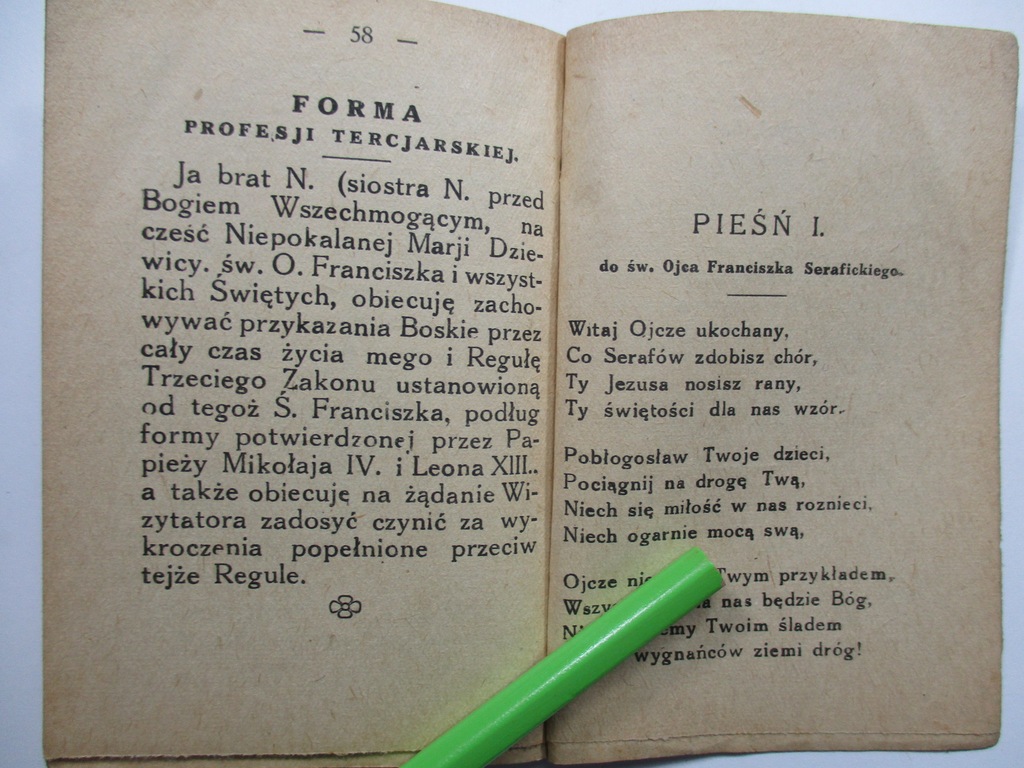 — 58 —
FORMA
PROFESJI TERCJARSKIEJ.
Ja brat N. (siostra N. przed
Bogiem Wszechmogącym, na
cześć Niepokalanej Marji Dzie-
wicy. św. O. Franciszka i wszyst-
kich Świętych, obiecuję zacho-
wywać przykazania Boskie przez
cały czas życia mego i Regułę
Trzeciego Zakonu ustanowioną
od tegoż Ś. Franciszka, podług
formy potwierdzonej przez Pa-
pieży Mikołaja IV. i Leona XIII..
a także obiecuję na żądanie Wi-
zytatora zadosyć czynić za wy-
kroczenia popełnione przeciw
tejże Regule.
PIEŚŃ I.
do św. Ojca Franciszka Serafickiego.
Witaj Ojcze ukochany,
Co Serafów zdobisz chór,
Ty Jezusa nosisz rany,
Ty świętości dla nas wzór.
Pobłogosław Twoje dzieci,
Pociągnij na drogę Twą,
Niech się miłość w nas roznieci,
Niech ogarnie mocą swą,
Ojcze Twym przykładem,
nas będzie Bóg,
Twoim śladem
wygnańców ziemi dróg!